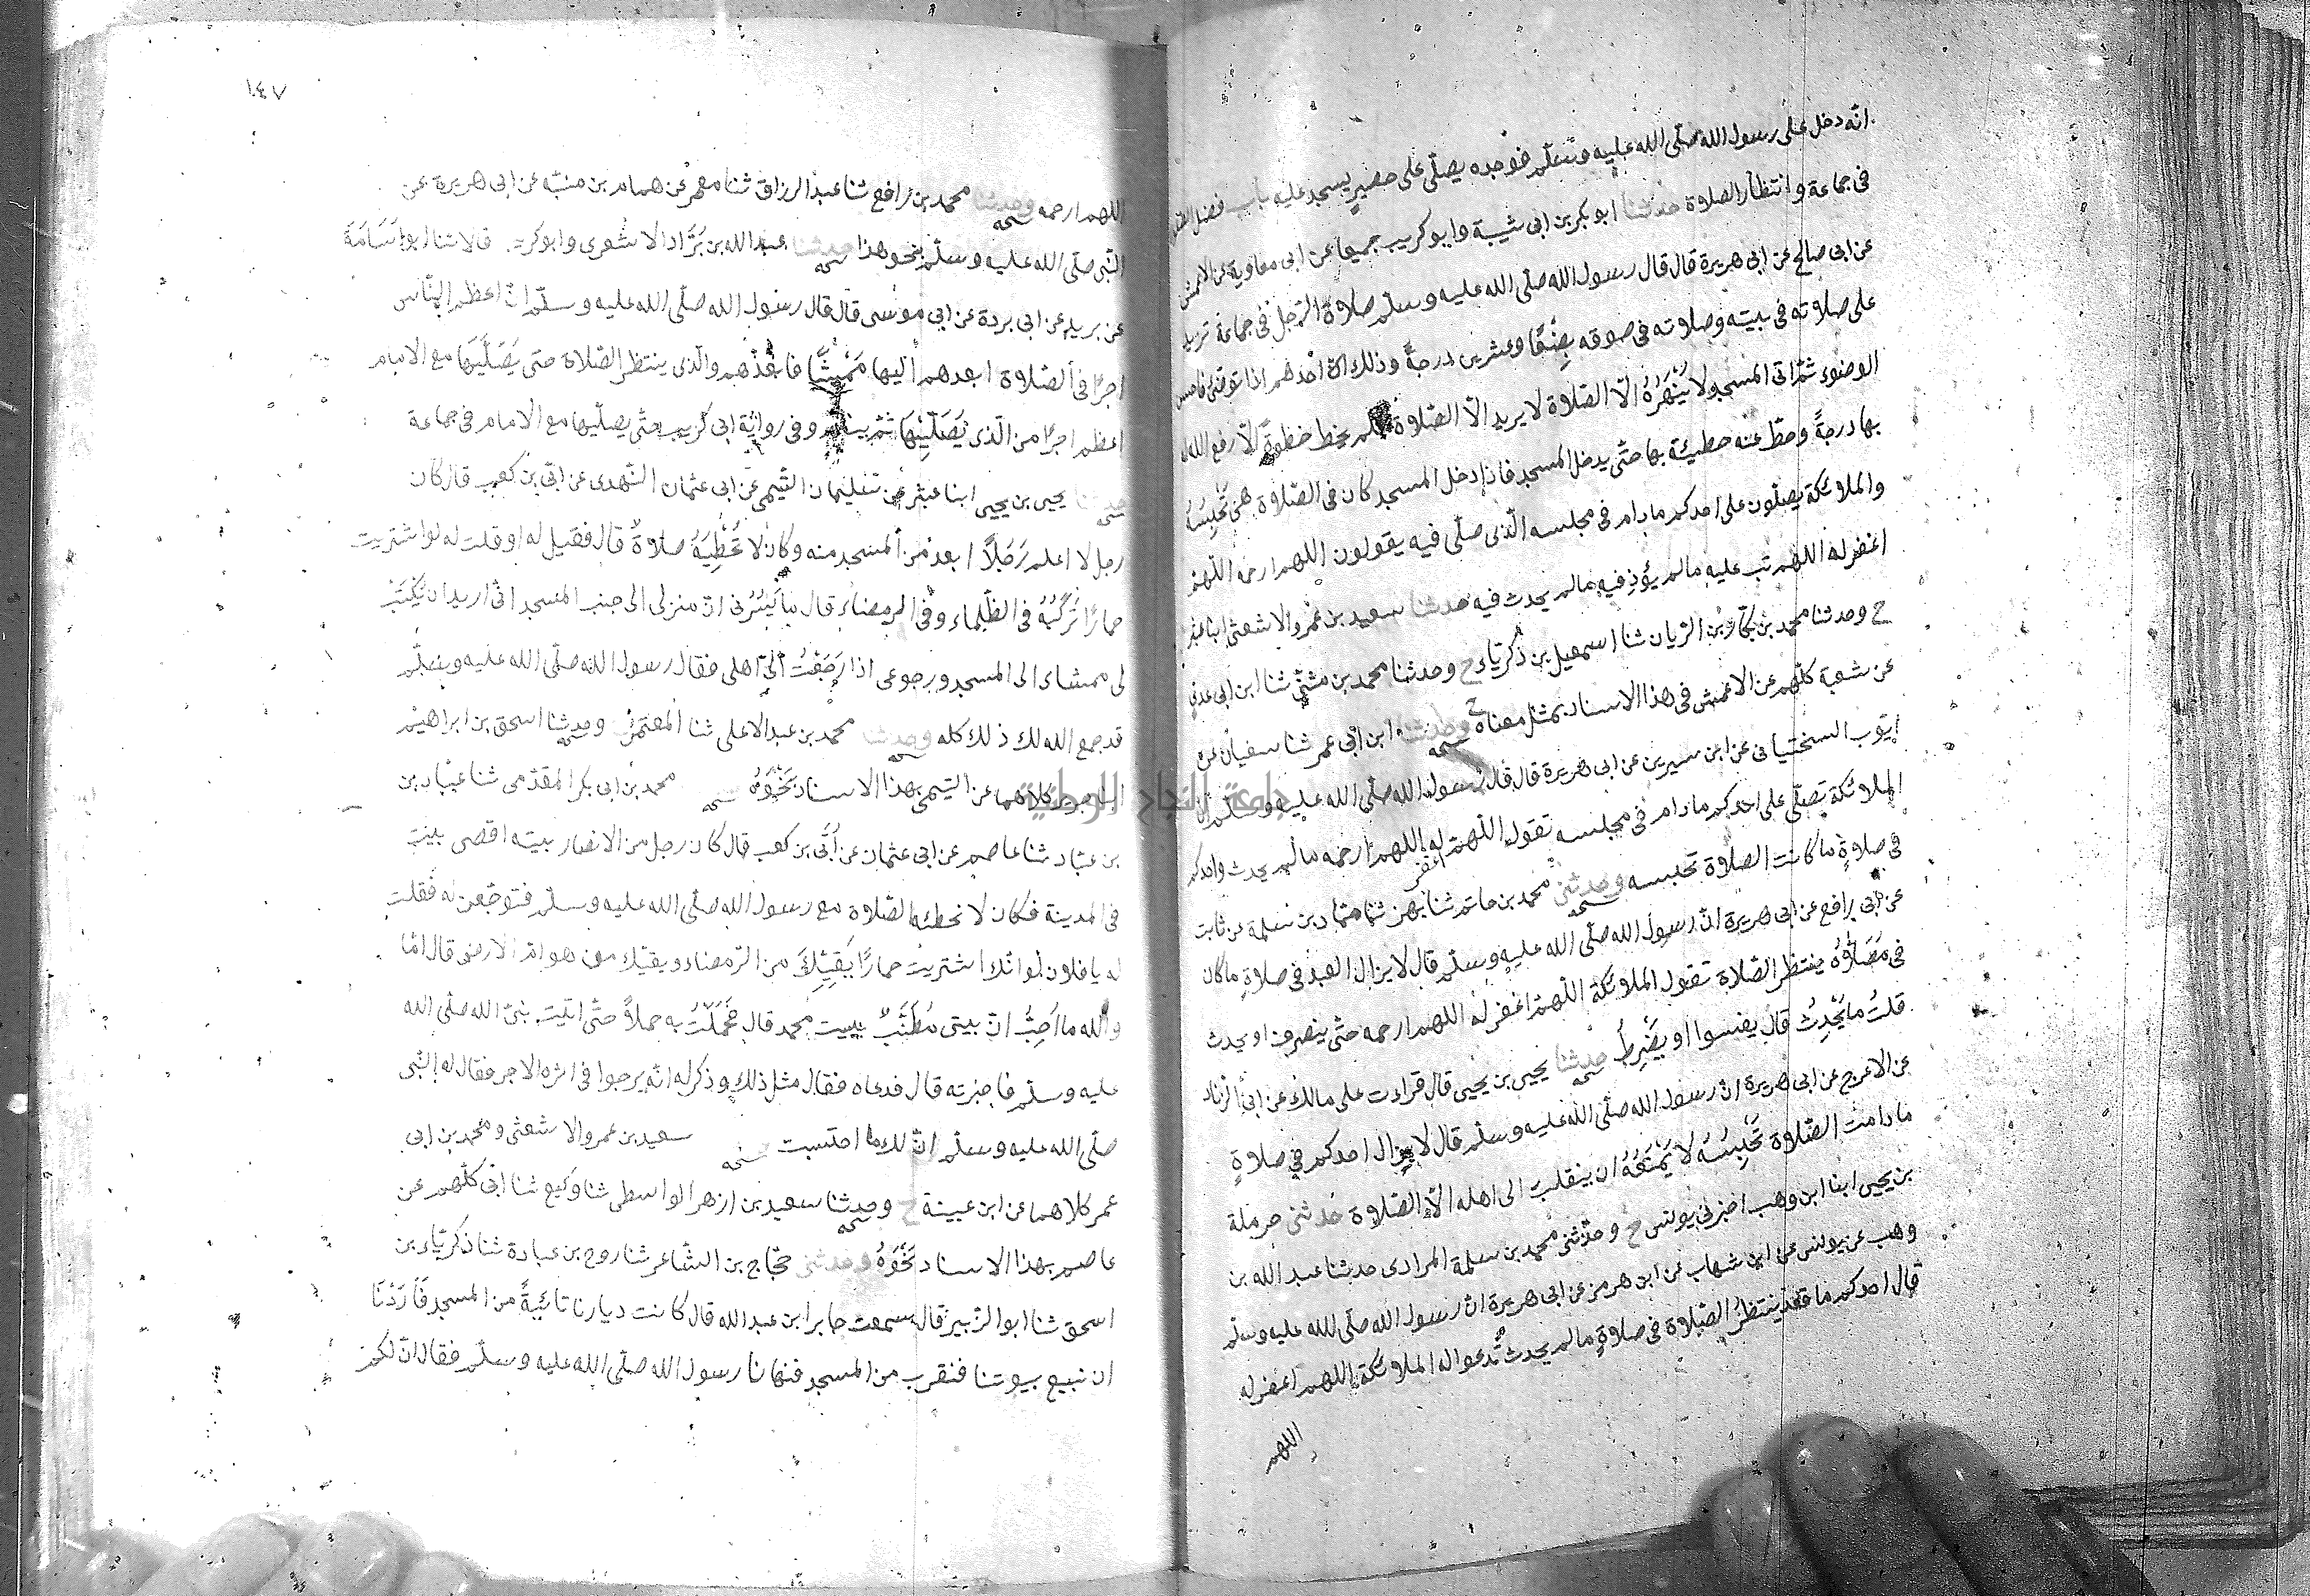 انه دخل على رسول الله صلّى الله عليه وسلّم فوجده يصلّى على حصير يسجد عليه باب فضل الصلاة
فى جماعة وانتظار الصلاة حدثنا ابو بكر بن ابى شيبة وابو كريب جميعا عن ابى معاوية عن الاعمش
عن ابى صالح عن ابى هريرة قال قال رسول الله صلّى الله عليه وسلّم صلاة الرّجل فى جماعة تزيد
على صلاته فى بيته وصلاته فى صوقه بِضْعًا وعشرين درجةً وذلك انّ احدهم اذا توضّئ فاحسن
الوضوء ثمّ اتى المسجد لا يَنْهَزُهُ الّا الصّلاة لا يريد الّا الصّلاة فلم يخط خطوةً الّا رفع الله له
بها درجةً وحطّ عنه خطيئة بها حتّى يدخل المسجد فاذا دخل المسجد كان فى الصّلاة هى تَحْبِسُهُ
والملائكة يصلّون على احدكم مادام فى مجلسه الّذى صلّى فيه يقولون اللهم ارحمه اللّهمّ
اغفر له اللهم تب عليه مالم يؤذِ فيه مالم يحدث فيه حدثنا سعيد بن عمرو الاشعثى ابنا عبثر
ح وحدثنا محمد بن بكّار بن الرّيان ثنا اسمعيل بن زكريّاء ح وحدثنا محمد بن مثنّى ثنا ابن ابى عدى
عن شعبة كلّهم عن الاعمش فى هذا الاسناد بمثل معناه وحدثنا ابن ابى عمر ثنا سفيان عن
ايّوب السختيانى عن ابن سيرين عن ابى هريرة قال قال رسول الله صلّى الله عليه وسلّم انّ
الملائكة تصلّى على احدكم مادام فى مجلسه تقول اللّهمّ اغفر له اللهم ارحمه مالم يحدث واحدكم
فى صلاةٍ ما كانت الصلاة تحبسه وحدثنى محمد بن حاتم ثنا بهز ثنا حمّاد بن سلمة عن ثابت
عن ابى رافع عن ابى هريرة انّ رسول الله صلّى الله عليه وسلّم قال لا يزال العبد فى صلاةٍ ما كان
فى مُصَلّاهُ ينتظر الصّلاة تقول الملائكة اللّهمّ اغفر له اللهم ارحمه حتّى ينصرف او يحدث
قلت ما يُحْدِثُ قال يفسوا او يَضْرِطُ حدثنا يحيى بن يحيى قال قراءت على مالك عن ابى الزناد
عن الاعرج عن ابى هريرة انّ رسول الله صلّى الله عليه وسلّم قال لا يزال احدكم فى صلاةٍ
مادامت الصّلاة تَحْبِسُهُ لا يَمْنَعُهُ ان ينقلب الى اهله الّا الصّلاة حدثنى حرملة
بن يحيى ابنا ابن وهب اخبرنى يونس ح وحدّثنى محمد بن سلمة المرادى حدثنا عبد الله بن
وهب عن يونس عن ابن شهاب عن ابن هرمز عن ابى هريرة انّ رسول الله صلّى الله عليه وسلّم
قال احدكم ما قعد ينتظر الصّلاة فى صلاةٍ مالم يحدث تدعوا له الملائكة اللهم اغفر له
اللهم
١٤٧
اللهم ارحمه وحدثنا محمد بن رافع ثنا عبد الرزاق ثنا معمر عن همام بن منبّه عن ابى هريرة عن
النّبى صلّى الله عليه وسلّم بنحو هذا حدثنا عبد الله بن بَرَّاد الاشعرى وابو كريب قالا ثنا ابو اسَامَةَ
عن بريد عن ابى بردة عن ابى موسى قال قال رسول الله صلّى الله عليه وسلّم انّ اعظم النّاس
اجرًا فى الصّلاة ابعدهم اليها مَمْشًى فابعدهم والّذى ينتظر الصّلاة حتى يصَلّيَهَا مع الامام
اعظم اجرًا من الّذى يُصَلّيهَا ثمّ ينام وفى رواية ابى كريب حتّى يصلّيها مع الامام فى جماعة
حدثنا يحيى بن يحيى ابنا عبثر عن سليمان التّيمى عن ابى عثمان النّهدى عن ابىّ بن كعب قال كان
رجل لا اعلم رَجُلاً ابعد من المسجد منه وكان لا تُخْطِيَهُ صلاةٌ قال فقيل له او قلت له لو اشتريت
حمارًا تَرْكَبُهُ فى الظّلماء وفى الرمضاء قال ما يَسُرُّنى انّ منزلى الى جنب المسجد انّى اريد ان يُكْتَبَ
لى ممشاى الى المسجد ورجوعى اذا رَجَعْتُ الى اهلى فقال رسول الله صلّى الله عليه وسلّم
قد جمع الله لك ذلك كله وحدثنا محمد بن عبد الاعلى ثنا المعتمر وحدثنا اسحق بن ابراهيم
ابنا جرير كلاهما عن التّيمى بهذا الاسناد بَنَحْوِهُ محمد بن ابى بكر المقدّمى ثنا عبّاد بن
بن عبّاد ثنا عاصم عن ابى عثمان عن اُبَىّ بن كعب قال كان رجل من الانصار بيته اقصى بيت
فى المدينة فكان لا تخطئه الصّلاة مع رسول الله صلّى الله عليه وسلّم فتوجّعنا له فقلت
له يا فلان لو انّك اشتريت حمارًا يَقيْكَ من الرّمضاء ويقيك من هوامّ الارض قال امّا
والله ما اُحِبُّ انّ بيتى مُطَنَّبٌ ببيت محمد قال فحَمَلْتُ به حملاً حتّى اتيت نبىّ الله صلّى الله
عليه وسلّم فاخبرته قال فدعاه فقال مثل ذلك وذكر له انّه يرجوا فى اثره الاجر فقال له النّبى
صلّى الله عليه وسلّم انّ لك ما احتسبت سعيد بن عمرو الاشعثى ومحمد بن ابى
عمر كلاهما عن ابن عيينة ح وحدثنا سعيد بن ازهر الواسطى ثنا وكيع ثنا ابى كلّهم عن
عاصم بهذا الاسناد نَحْوَهُ وحدثنى حجّاج بن الشّاعر ثنا روح بن عبادة ثنا زكريّاء بن
اسحق ثنا ابو الزّبير قال سمعت جابر ابن عبد الله قال كانت ديارنا نائيةً من المسجد فَاَرَدْنَا
ان نبيع بيوتنا فنقرب من المسجد فنهانا رسول الله صلّى الله عليه وسلّم فقال انّ لكم
جامعة النجاح الوطنية